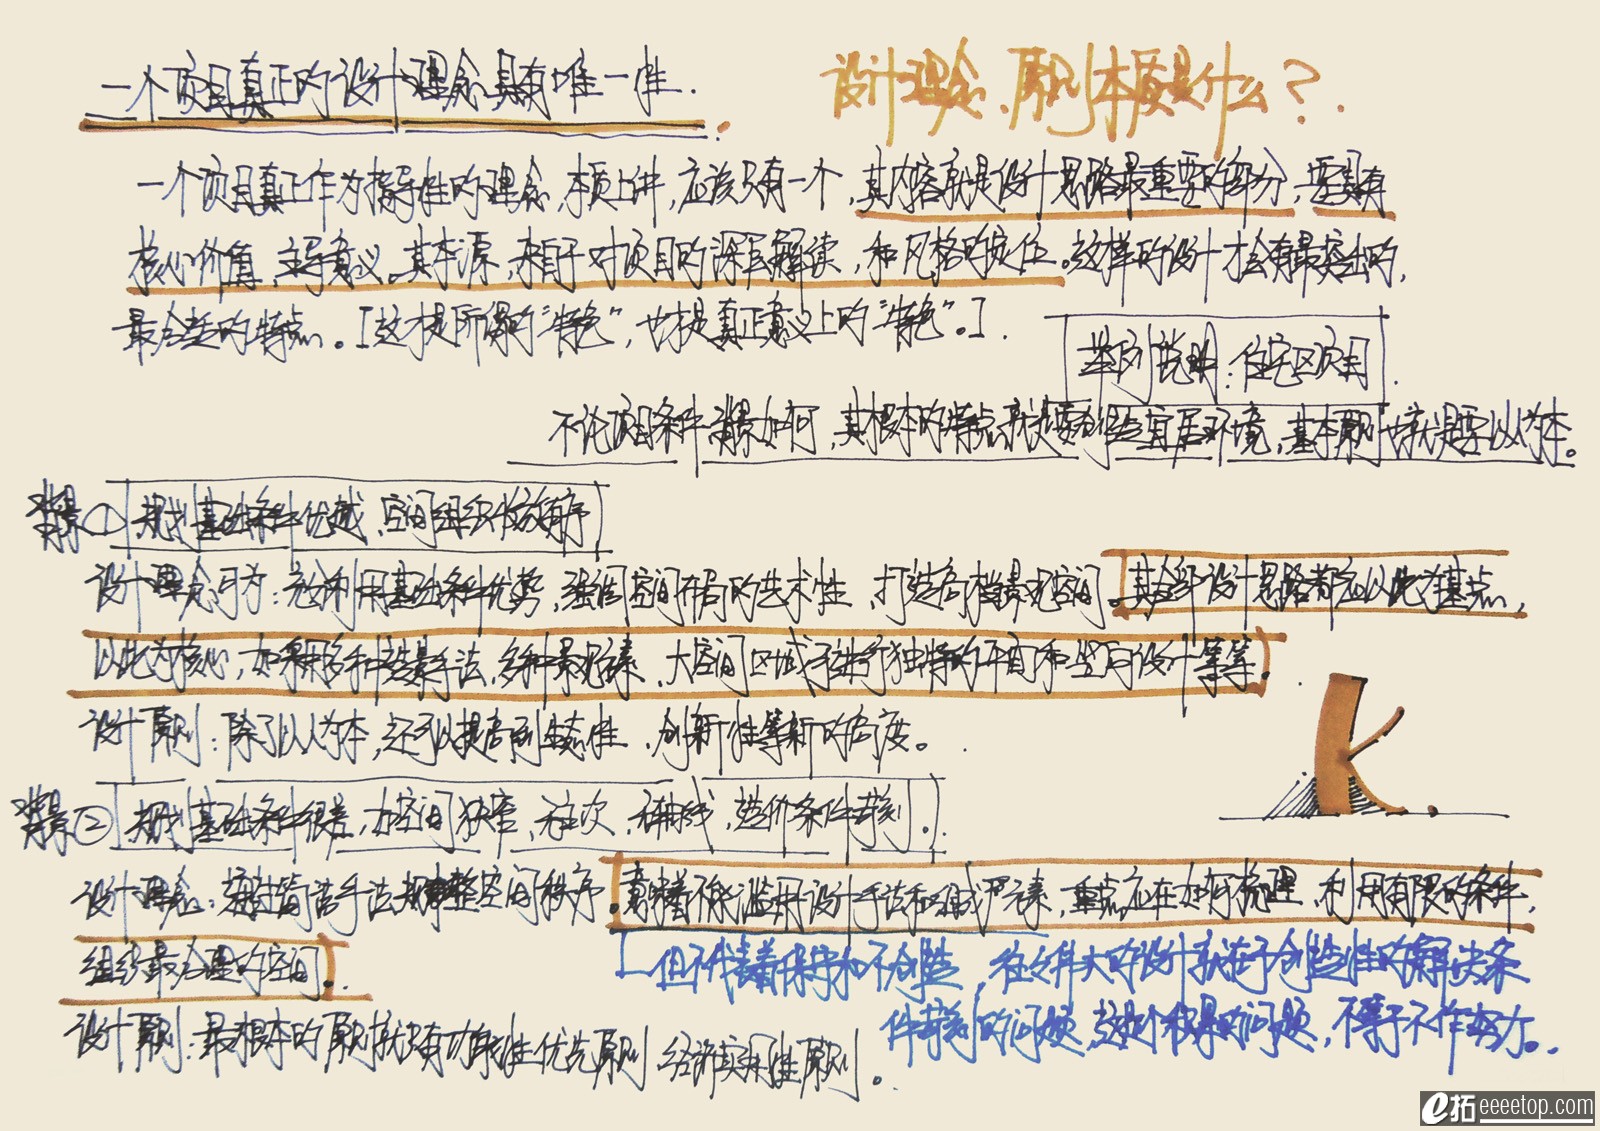 一个项目真正的设计理念具有唯一性.
设计理念、原则本质是什么?
一个项目真正作为指导性的理念,本质上讲,应该只有一个,其内容就是设计思路最重要的部分,要具有
核心价值,主导意义。其本源,来自于对项目的深层解读,和风格的定位。这样的设计才会有最突出的,
最合适的特点。[这才是所谓的“特色”,也才是真正意义上的“特色”。].
举例说明:住宅区项目.
不论项目条件背景如何,其根本的特点就是要创造宜居环境,基本原则也就是要以人为本。
背景① 规划基础条件优越、空间组织收放有序
设计理念可为:充分利用基础条件优势,强调空间布局的艺术性,打造高档景观空间。其全部设计思路都应以此为基点,
以此为核心,如采用多种造景手法,多种景观元素、大空间区域予进行独特的平面和竖向设计等等.
设计原则:除了以人为本,还可以提高到生态性、创新性等新的高度。
背景② 规划基础条件很差,如空间狭窄、无主次、无轴线,造价条件苛刻.
设计理念:通过简洁手法规整空间秩序.意味着不能滥用设计手法和减少元素,重点应在如何梳理、利用有限的条件,
组织最合理的空间.
但不代表着保守和不创造,往往伟大的设计就在于创造性的解决条
件苛刻的问题,这是个积累的问题,不等于不作努力。
设计原则:最根本的原则就只有功能性优先原则 经济实用性原则。
e拓 eeeetop.com